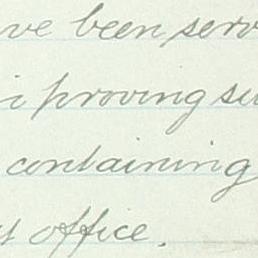 ve been serv
i proving su
containing
st office.